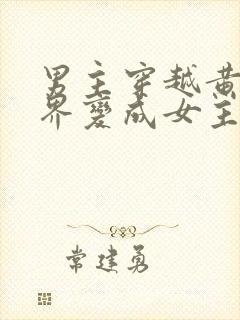 男主穿越黄
界变成女主
常建勇